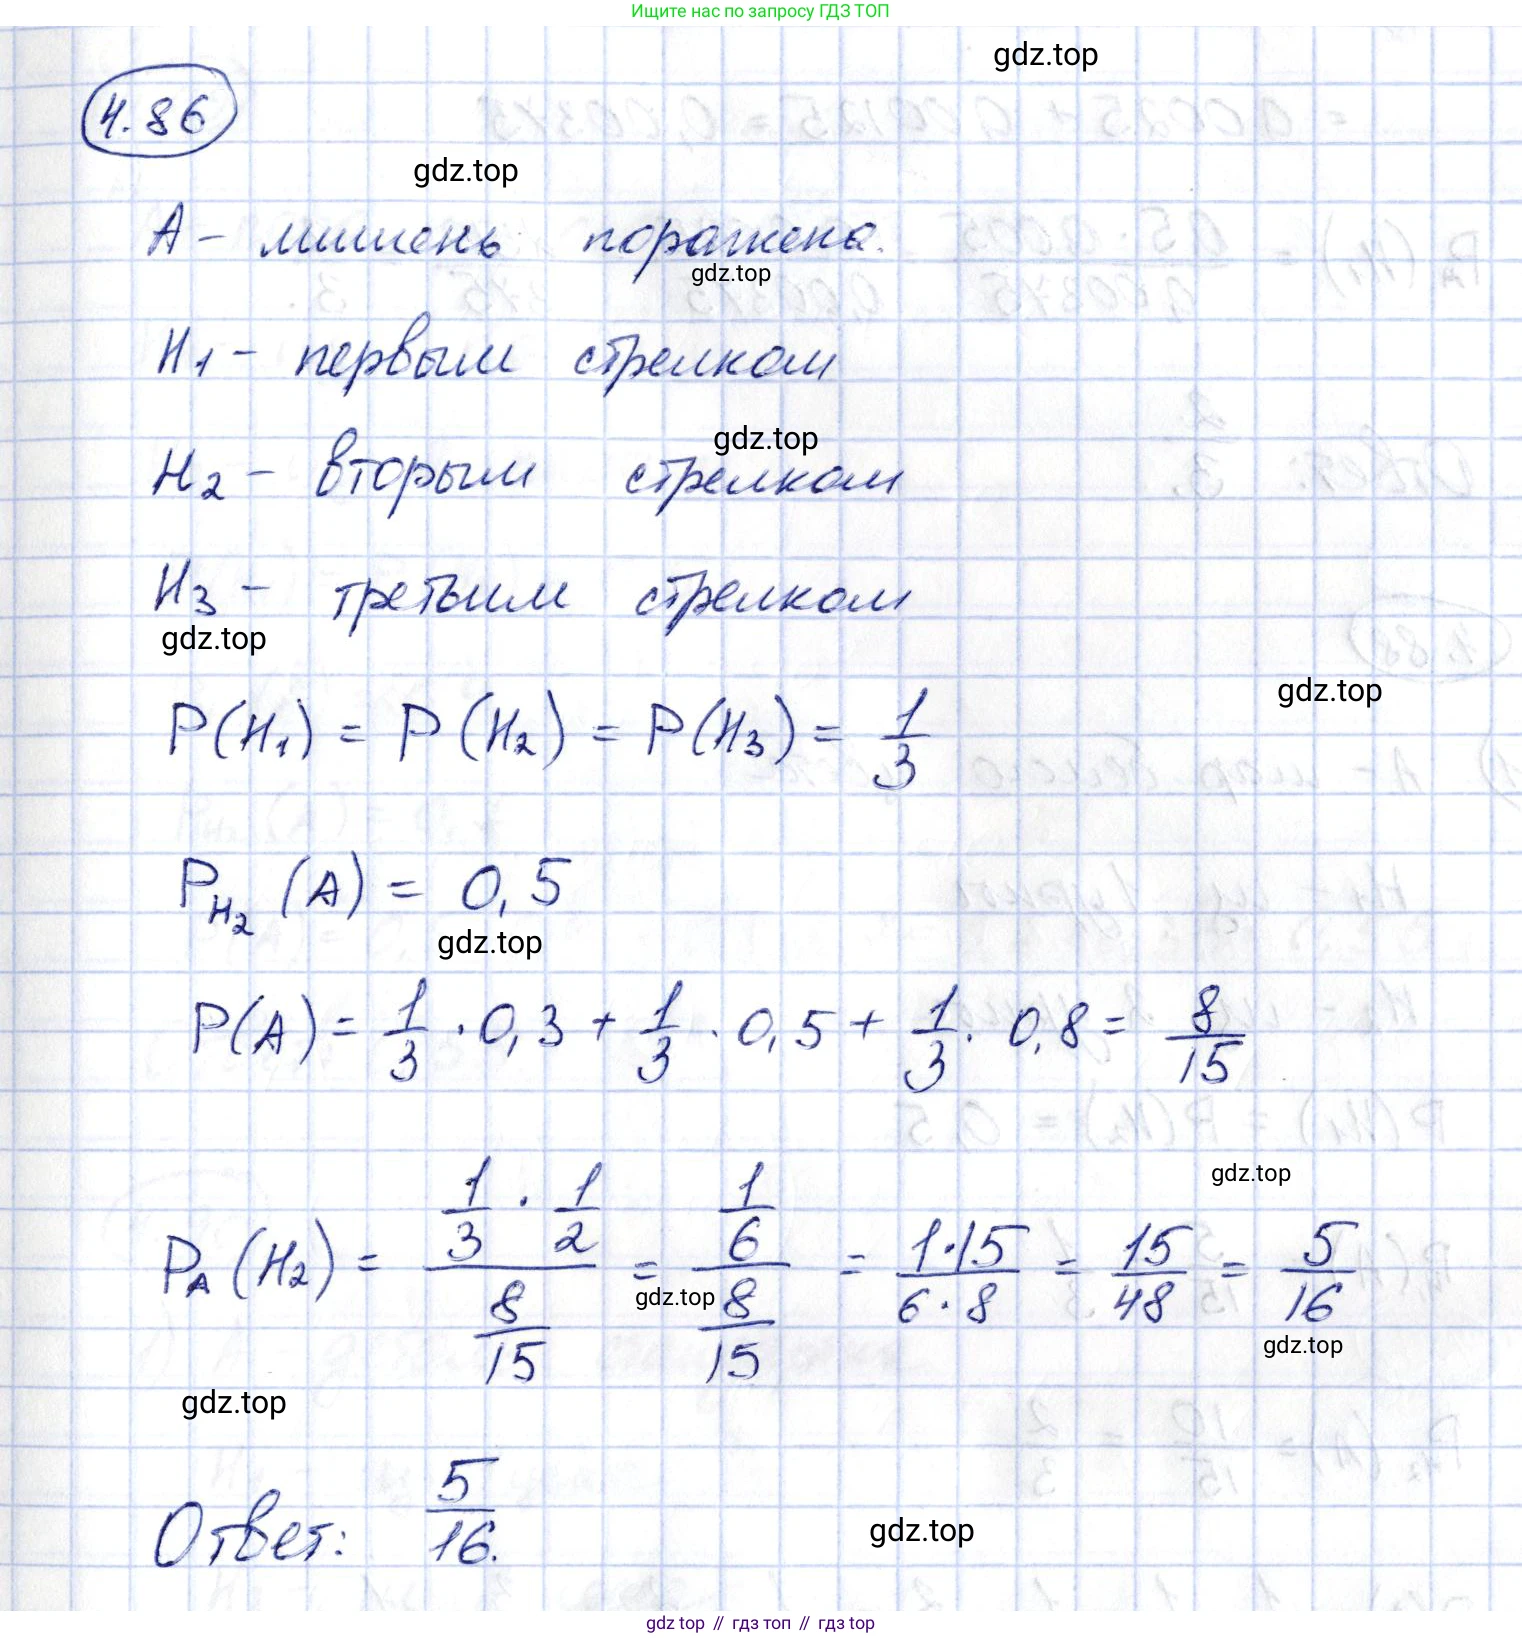 Ищите нас по запросу ГДЗ ТОП
gdz.top
4.86
gdz.top
A - мишень поражена.
gdz.top
H1 - первым стрелком
gdz.top
H2 - вторым стрелком
H3 - третьим стрелком
gdz.top
gdz.top
P(H1) = P(H2) = P(H3) = 1/3
P_H2 (A) = 0,5
gdz.top
P(A) = 1/3 · 0,3 + 1/3 · 0,5 + 1/3 · 0,8 = 8/15
gdz.top
P_A (H2) = (1/3 · 1/2)/(8/15) = (1/6)/(8/15) = (1·15)/(6·8) = 15/48 = 5/16
gdz.top
gdz.top
gdz.top
Ответ: 5/16.
gdz.top
gdz.top // гдз топ // гдз top